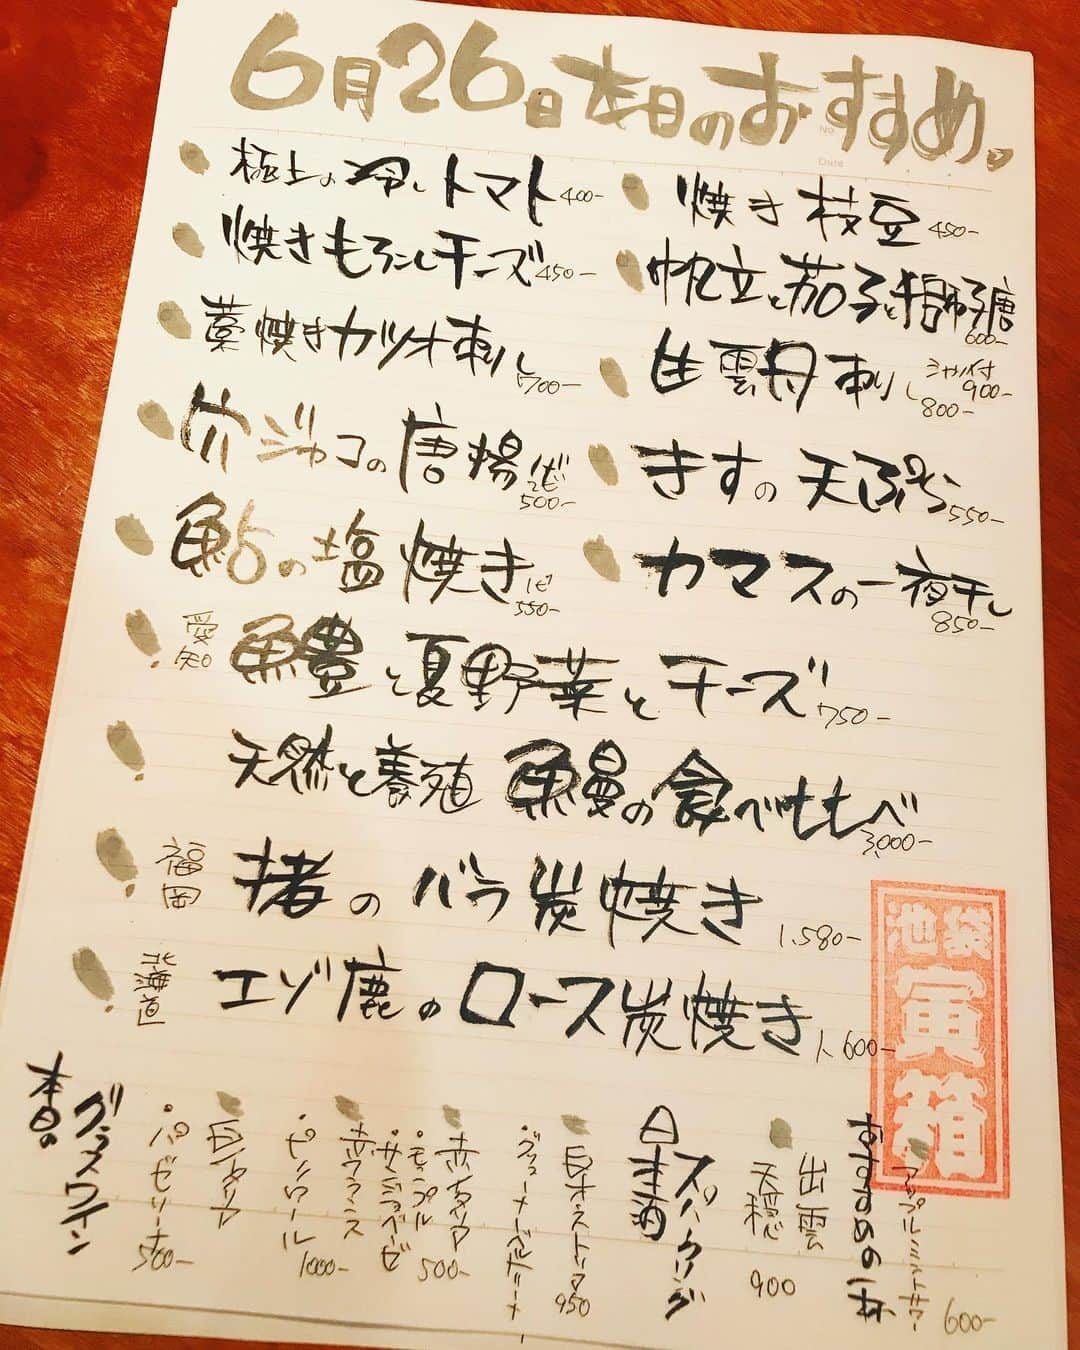 6月26日本日のおすすめ。
極上の冷しトマト 400-
焼き枝豆 450-
焼きもろこしチーズ 450-
帆立と茄子と獅子唐 600-
藁焼きカツオ刺し 700-
生雲丹刺し シャリ付 900- 800-
竹ジャコの唐揚 500-
きすの天ぷら 550-
鮎の塩焼き 1ピ 550-
カマスの一夜干し 850-
愛知 鱧と夏野菜とチーズ 750-
天然と養殖 鰻の食べ比べ 3,000-
福岡 猪のバラ炭焼き 1,580-
北海道 エゾ鹿のロース炭焼き 1,600-
池袋 寅箱
おすすめの一杯
アップルミントサワー 600-
出雲
天穏 900
スパークリング
日本酒
白オーストリア 950
グリューナーベルトリーナー
赤イタリア
・モンテプル
・サンジョベーゼ 500-
赤フランス
・ピノノワール 1000-
白イタリア
・パッセリーナ 500-
本日の
グラスワイン